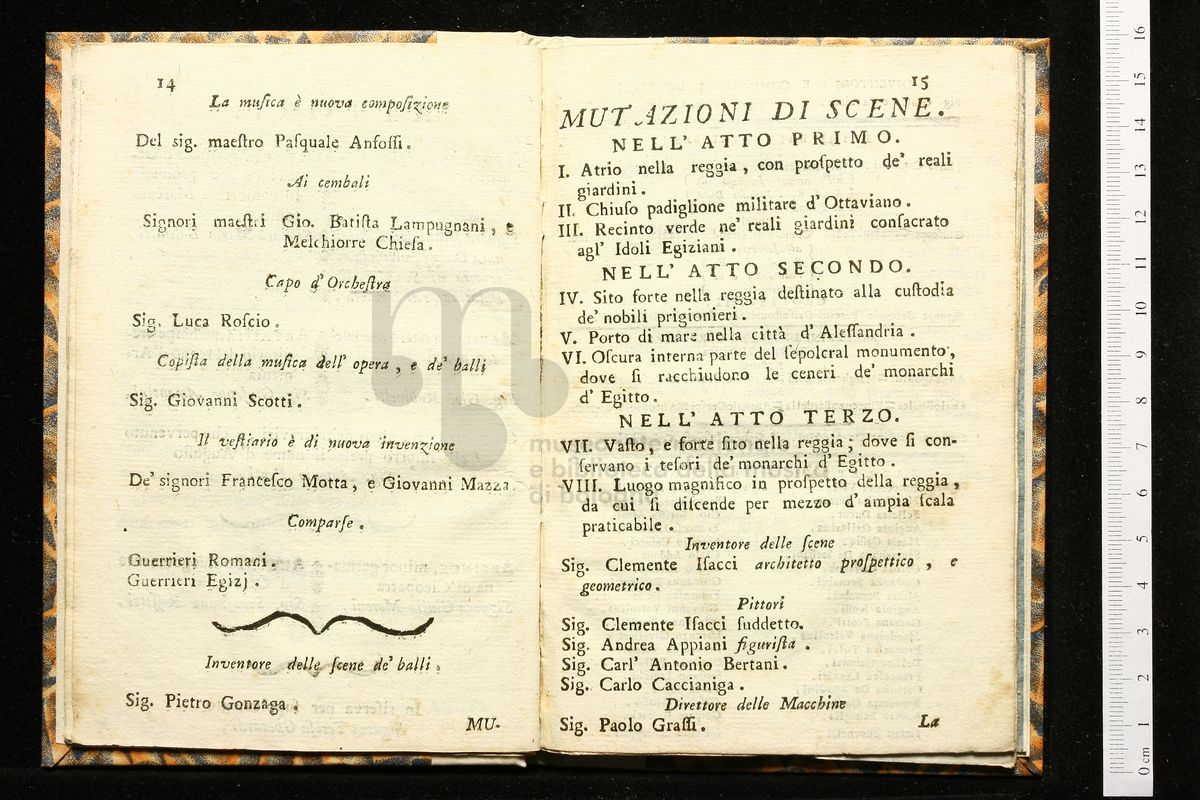 14
La muſica è nuova compoſizione
Del sig. maeſtro Paſquale Anfoſſi.
Ai cembali
Signori maeſtri Gio. Batiſta Lampugnani, e
Melchiorre Chieſa.
Capo d'Orcheſtra
Sig. Luca Roſcio.
Copiſta della muſica dell' opera, e de' balli
Sig. Giovanni Scotti.
Il veſtiario è di nuova invenzione
De' signori Franceſco Motta, e Giovanni Mazza.
Comparſe.
Guerrieri Romani.
Guerrieri Egizj.
Inventore delle ſcene de' balli.
Sig. Pietro Gonzaga.
MU-
15
MUTAZIONI DI SCENE.
NELL' ATTO PRIMO.
I. Atrio nella reggia, con proſpetto de' reali
giardini.
II. Chiuſo padiglione militare d'Ottaviano.
III. Recinto verde ne' reali giardini conſacrato
agl' Idoli Egiziani.
NELL' ATTO SECONDO.
IV. Sito forte nella reggia deſtinato alla cuſtodia
de' nobili prigionieri.
V. Porto di mare nella città d'Aleſſandria.
VI. Oſcura interna parte del ſepolcral monumento,
dove ſi racchiudono le ceneri de' monarchi
d'Egitto.
NELL' ATTO TERZO.
VII. Vaſto, e forte ſito nella reggia; dove ſi con-
ſervano i teſori de' monarchi d'Egitto.
VIII. Luogo magnifico in proſpetto della reggia,
da cui ſi diſcende per mezzo d'ampia ſcala
praticabile.
Inventore delle ſcene
Sig. Clemente Iſacci architetto proſpettico, e
geometrico.
Pittori
Sig. Clemente Iſacci ſuddetto.
Sig. Andrea Appiani figuriſta.
Sig. Carl' Antonio Bertani.
Sig. Carlo Caccianiga.
Direttore delle Macchine
Sig. Paolo Graſſi.
La
0 cm 1 2 3 4 5 6 7 8 9 10 11 12 13 14 15 16